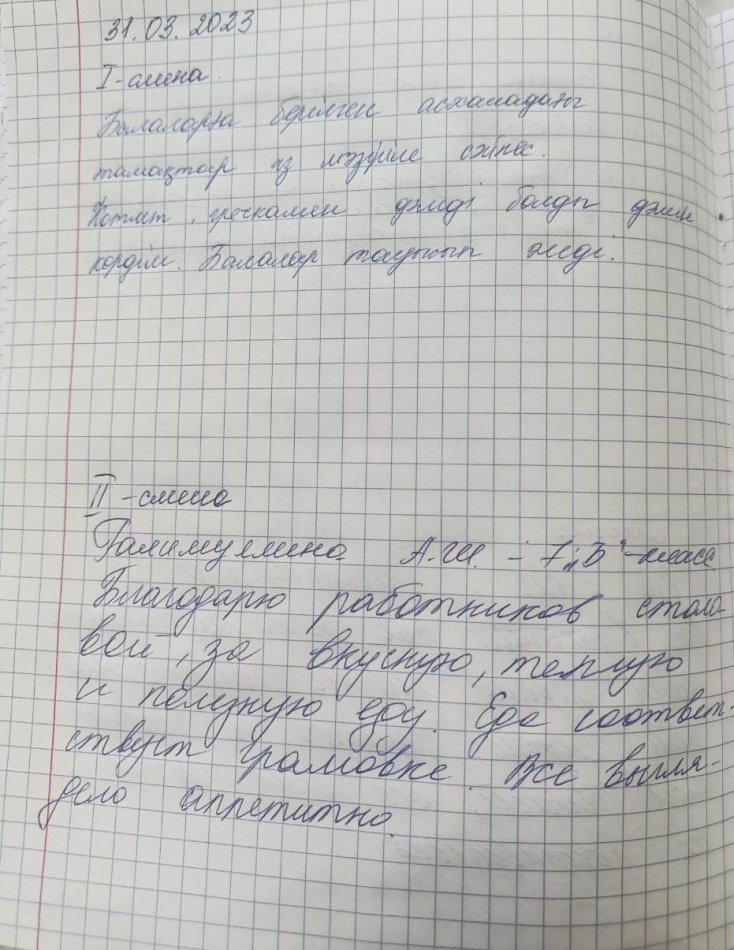 31.03.2023
I-смена.
Балаларға берілген асханадағы
тамақтар ас мәзіріне сәйкес.
Котлет, гречкамен дәмді болды дәмін
көрдім. Балалар тауысып жеді.
II-смена
Галимуллина А.Ш. - 7 „В"-класс
Благодарю работников столо-
вой, за вкусную, теплую
и полезную еду. Еда соответ-
ствует грамовке. Все выгля-
дело аппетитно.